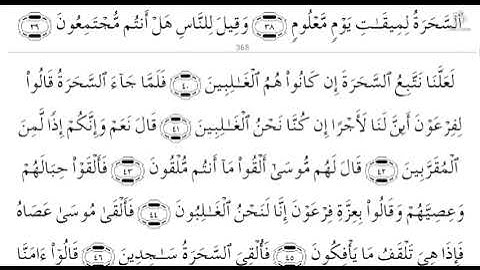 ٱلسَّحَرَةُ لِمِيقَـٰتِ يَوۡمٍ مَّعۡلُومٍ ٣٨ وَقِيلَ لِلنَّاسِ هَلۡ أَنتُم مُّجۡتَمِعُونَ ٣٩
368
لَعَلَّنَا نَتَّبِعُ ٱلسَّحَرَةَ إِن كَانُواْ هُمُ ٱلۡغَـٰلِبِينَ ٤٠ فَلَمَّا جَآءَ ٱلسَّحَرَةُ قَالُواْ
لِفِرۡعَوۡنَ أَئِنَّ لَنَا لَأَجۡرًا إِن كُنَّا نَحۡنُ ٱلۡغَـٰلِبِينَ ٤١ قَالَ نَعَمۡ وَإِنَّكُمۡ إِذًا لَّمِنَ
ٱلۡمُقَرَّبِينَ ٤٢ قَالَ لَهُم مُّوسَىٰٓ أَلۡقُواْ مَآ أَنتُم مُّلۡقُونَ ٤٣ فَأَلۡقَوۡاْ حِبَالَهُمۡ
وَعِصِيَّهُمۡ وَقَالُواْ بِعِزَّةِ فِرۡعَوۡنَ إِنَّا لَنَحۡنُ ٱلۡغَـٰلِبُونَ ٤٤ فَأَلۡقَىٰ مُوسَىٰ عَصَاهُ
فَإِذَا هِيَ تَلۡقَفُ مَا يَأۡفِكُونَ ٤٥ فَأُلۡقِيَ ٱلسَّحَرَةُ سَـٰجِدِينَ ٤٦ قَالُوٓاْ ءَامَنَّا